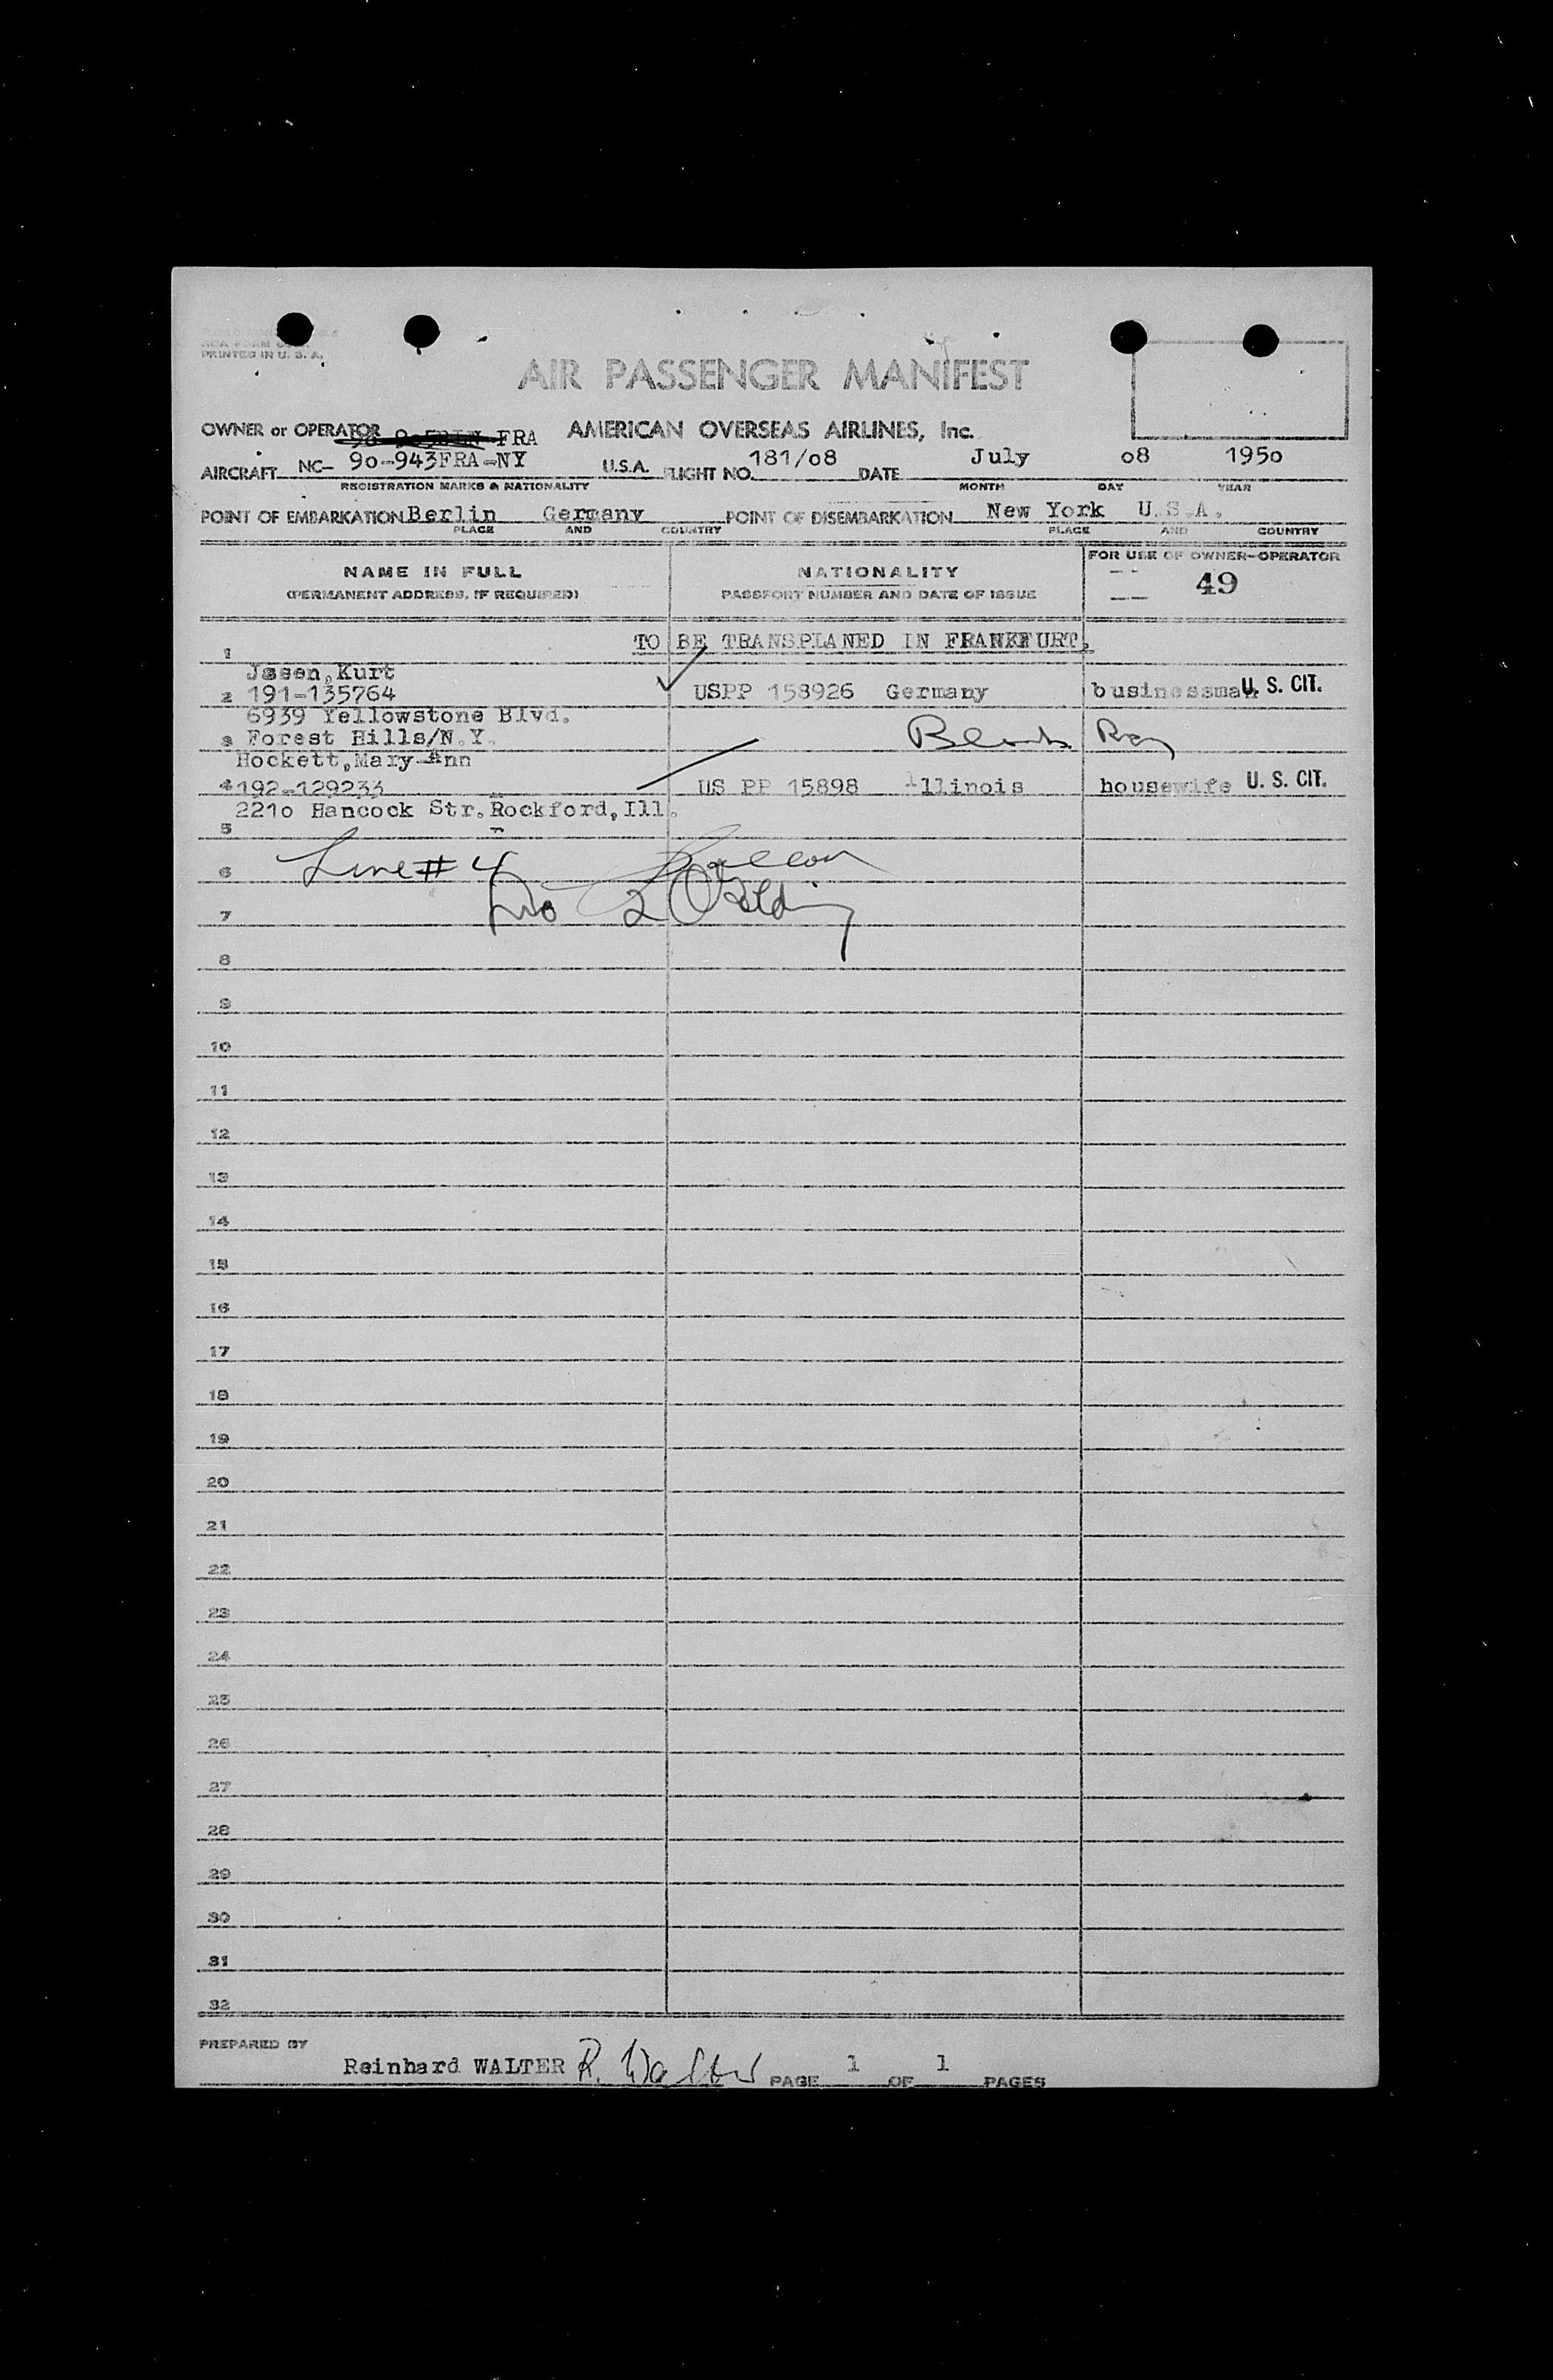 PRINTED IN U. S. A.
AIR PASSENGER MANIFEST
OWNER or OPERATOR FRA AMERICAN OVERSEAS AIRLINES, Inc.
AIRCRAFT NC- 9o-943FRA-NY U.S.A. FLIGHT NO. 181/o8 DATE July o8 195o
REGISTRATION MARKS & NATIONALITY MONTH DAY YEAR
POINT OF EMBARKATION Berlin Germany POINT OF DISEMBARKATION New York U.S.A.
PLACE AND COUNTRY PLACE AND COUNTRY
NAME IN FULL NATIONALITY FOR USE OF OWNER-OPERATOR
(PERMANENT ADDRESS, IF REQUIRED) PASSPORT NUMBER AND DATE OF ISSUE 49
1 TO BE TRANSPLANED IN FRANKFURT.
Kurt
2 191-135764 USPP 158926 Germany businessman U. S. CIT.
6939 Yellowstone Blvd.
3 Forest Hills/N.Y.
Hockett,Mary Ann
4 192-129233 US PP 15898 Illinois housewife U. S. CIT.
221o Hancock Str.Rockford,Ill.
5
Line # 4
6
7
8
9
10
11
12
13
14
15
16
17
18
19
20
21
22
23
24
25
26
27
28
29
30
31
32
PREPARED BY
Reinhard WALTER R. Walter PAGE 1 OF 1 PAGES